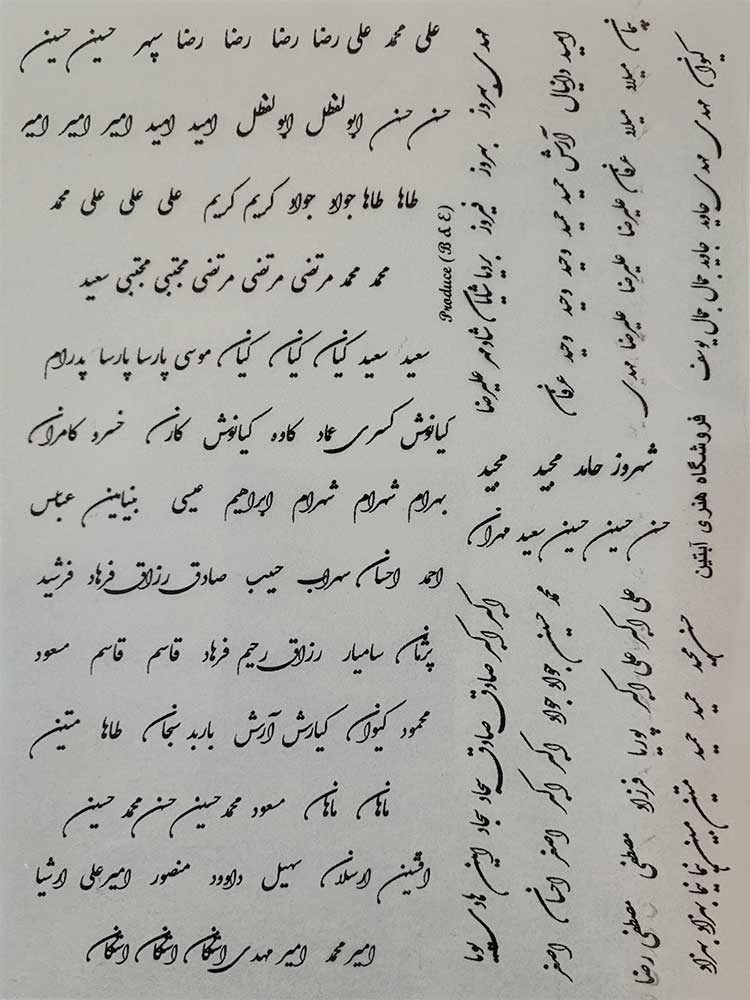 علی محمد علی رضا رضا رضا رضا سپهر حسین حسین
حسن حسن ابولفظل ابولفظل امید امید امیر امیر امیر
طاها طاها جواد جواد کریم کریم علی علی علی محمد
محمد محمد مرتضی مرتضی مرتضی مجتبی مجتبی سعید
سعید سعید کیان کیان کیان موسی پارسا پارسا پدرام
کیانوش کسری عماد کاوه کیانوش کارن خسرو کامران
بهرام شهرام شهرام ابراهیم عیسی بنیامین عباس
احمد احسان سهراب حبیب صادق رزاق فرهاد فرشید
پژمان سامیار رزاق رحیم فرهاد قاسم قاسم مسعود
محمود کیوان کیارش آرش باربد سبحان طاها متین
ماهان ماهان مسعود محمد حسین حسن محمد حسین
افشین ارسلان سهیل داوود منصور امیرعلی ارشیا
امیر محمد امیر مهدی اشکان اشکان اشکان
Produce (B & E)
مهدی بهروز بهروز فیروز بردیا شایان شادمهر علیرضا
امید دانیال آرش حمید حمید وحید وحید وحید عرفان
پیمان میلاد میلاد عرفان علیرضا علیرضا علیرضا مهدی
کیوان مهدی مهدی جاوید جاوید جمال جمال یوسف
شهروز حامد مجید مجید
حسن حسین حسین سعید مهران
فروشگاه هنری آبتین
اکبر اکبر صادق صادق سجاد سجاد امین هادی پویا
محمد حسین جواد جواد اکبر اکبر اکبر اصغر احسان اصغر
علی اکبر علی اکبر پوریا فرزاد مصطفی مصطفی رضا
حسن مجید حمید حمید متین مبین نیما نیما بهزاد بهزاد